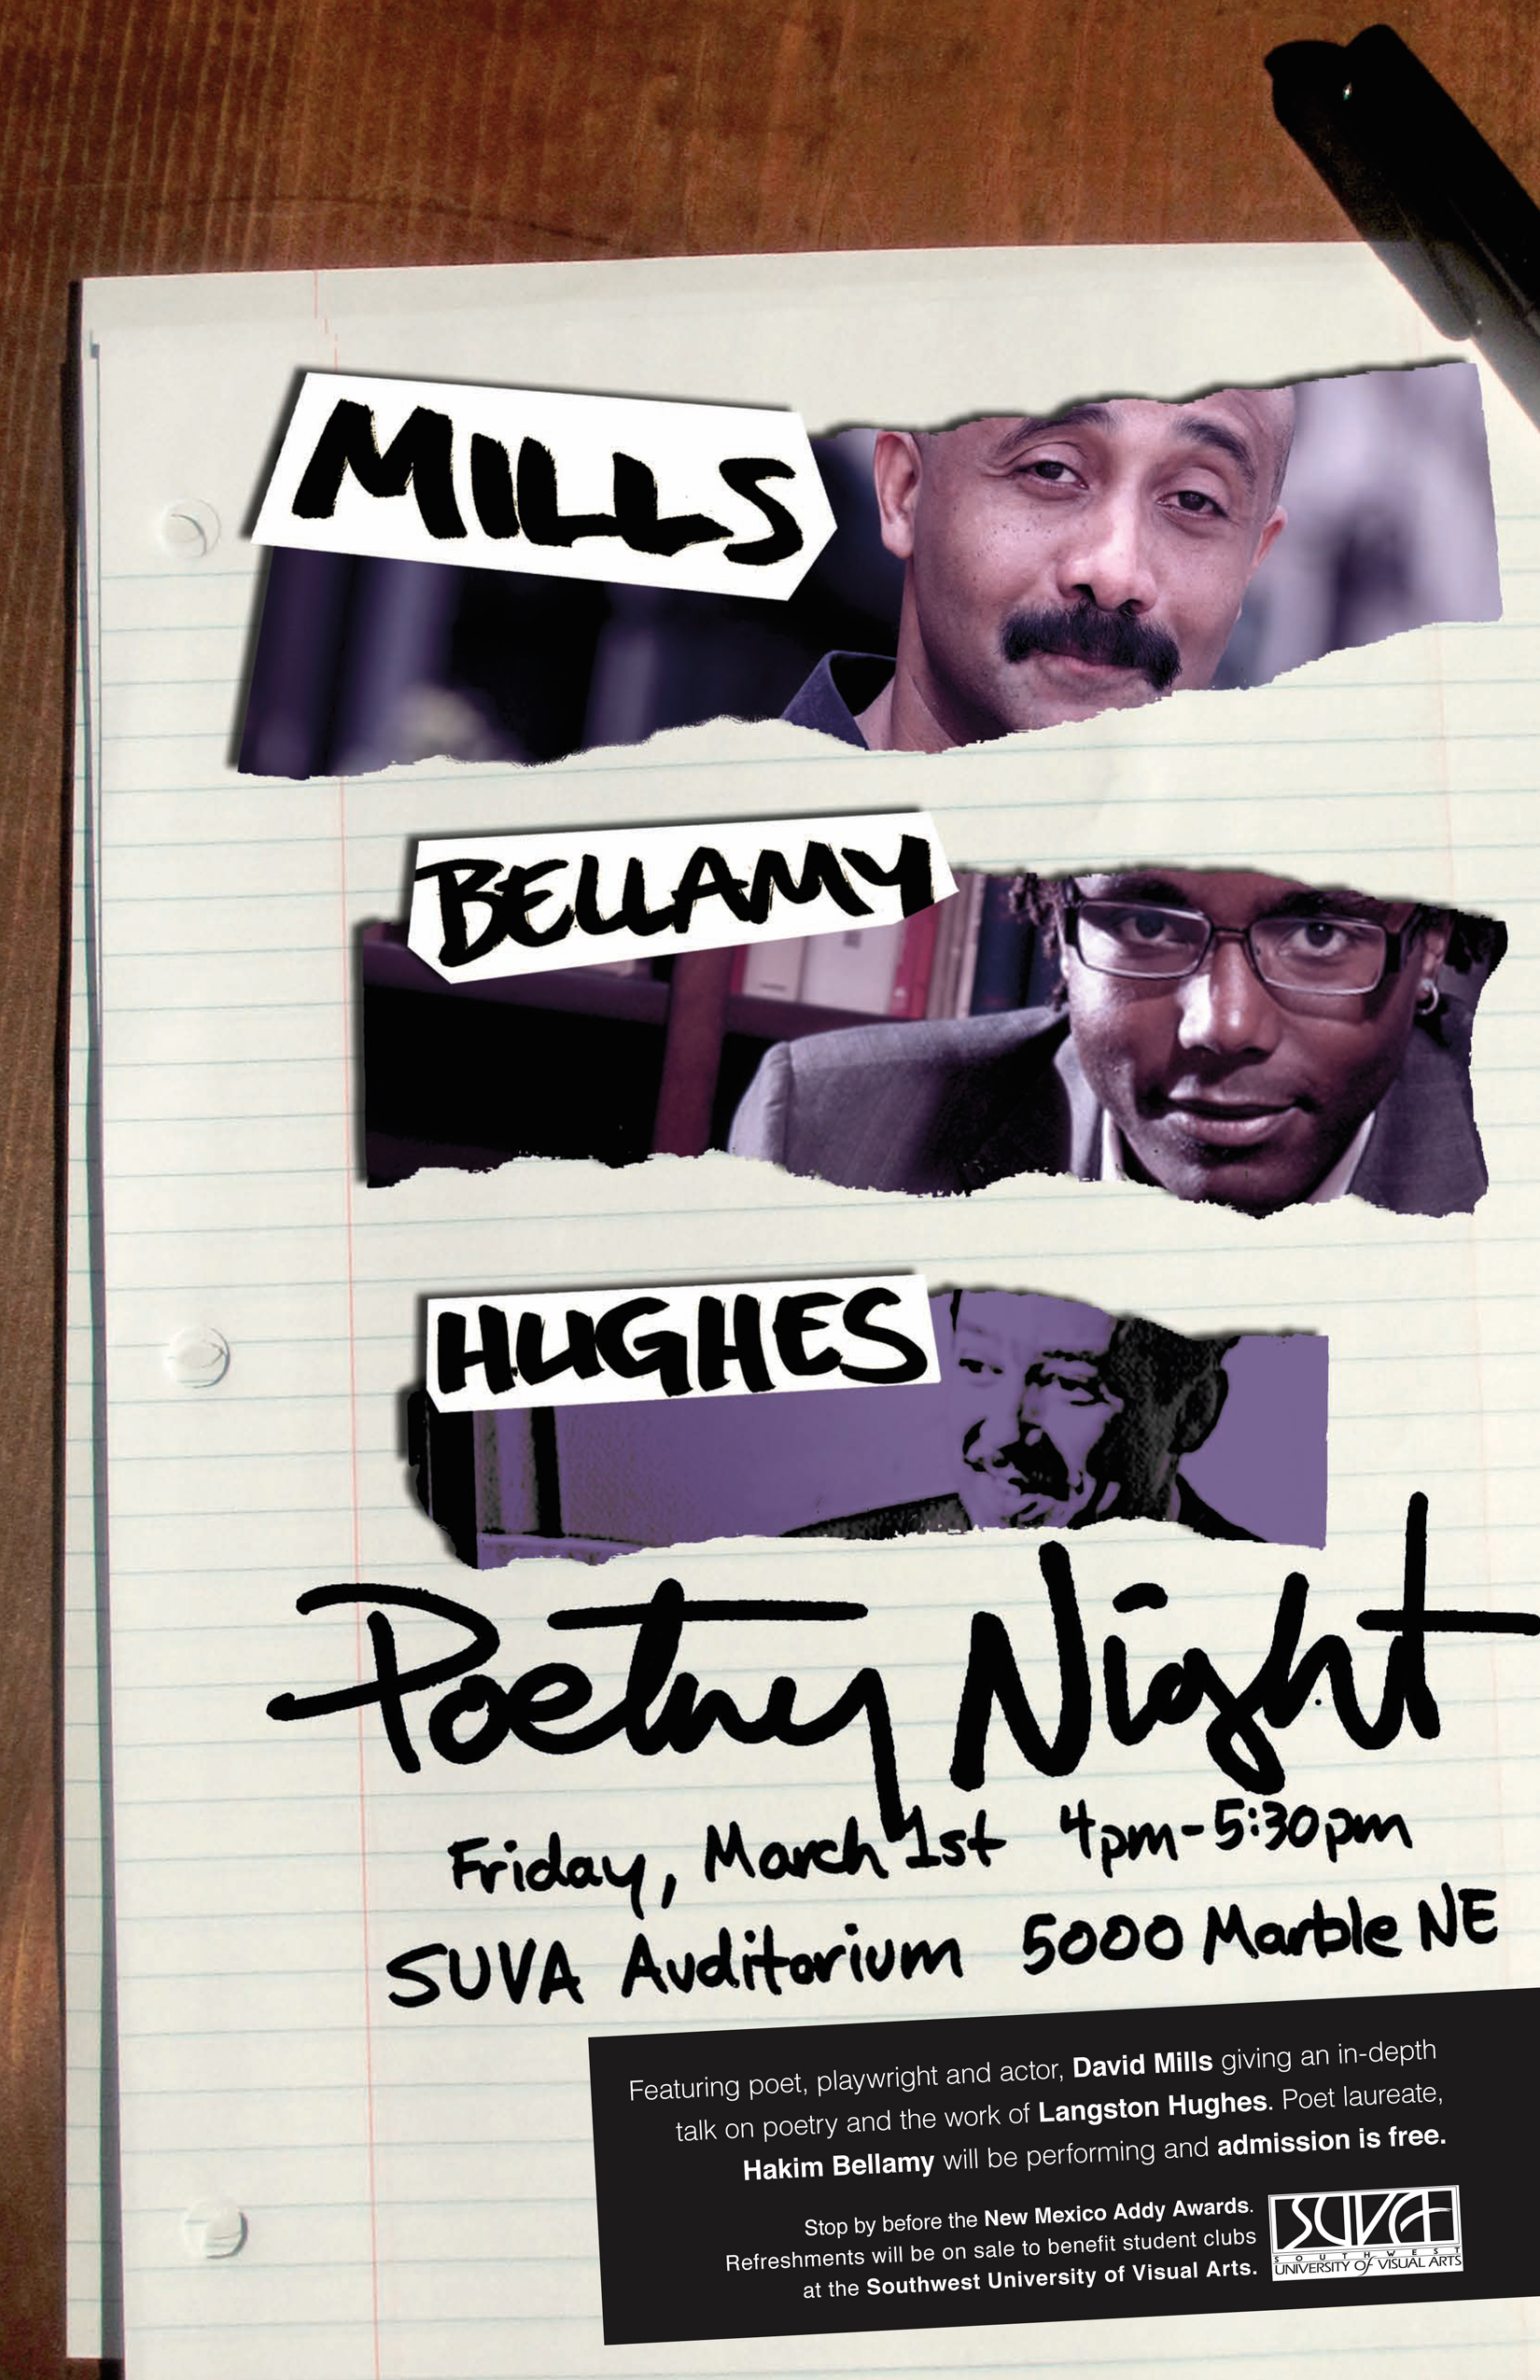 MILLS
BELLAMY
HUGHES
Poetry Night
Friday, March 1st 4pm-5:30pm
SUVA Auditorium 5000 Marble NE
Featuring poet, playwright and actor, David Mills giving an in-depth
talk on poetry and the work of Langston Hughes. Poet laureate,
Hakim Bellamy will be performing and admission is free.
Stop by before the New Mexico Addy Awards.
Refreshments will be on sale to benefit student clubs
at the Southwest University of Visual Arts.
SUVA
SOUTHWEST
UNIVERSITY OF VISUAL ARTS